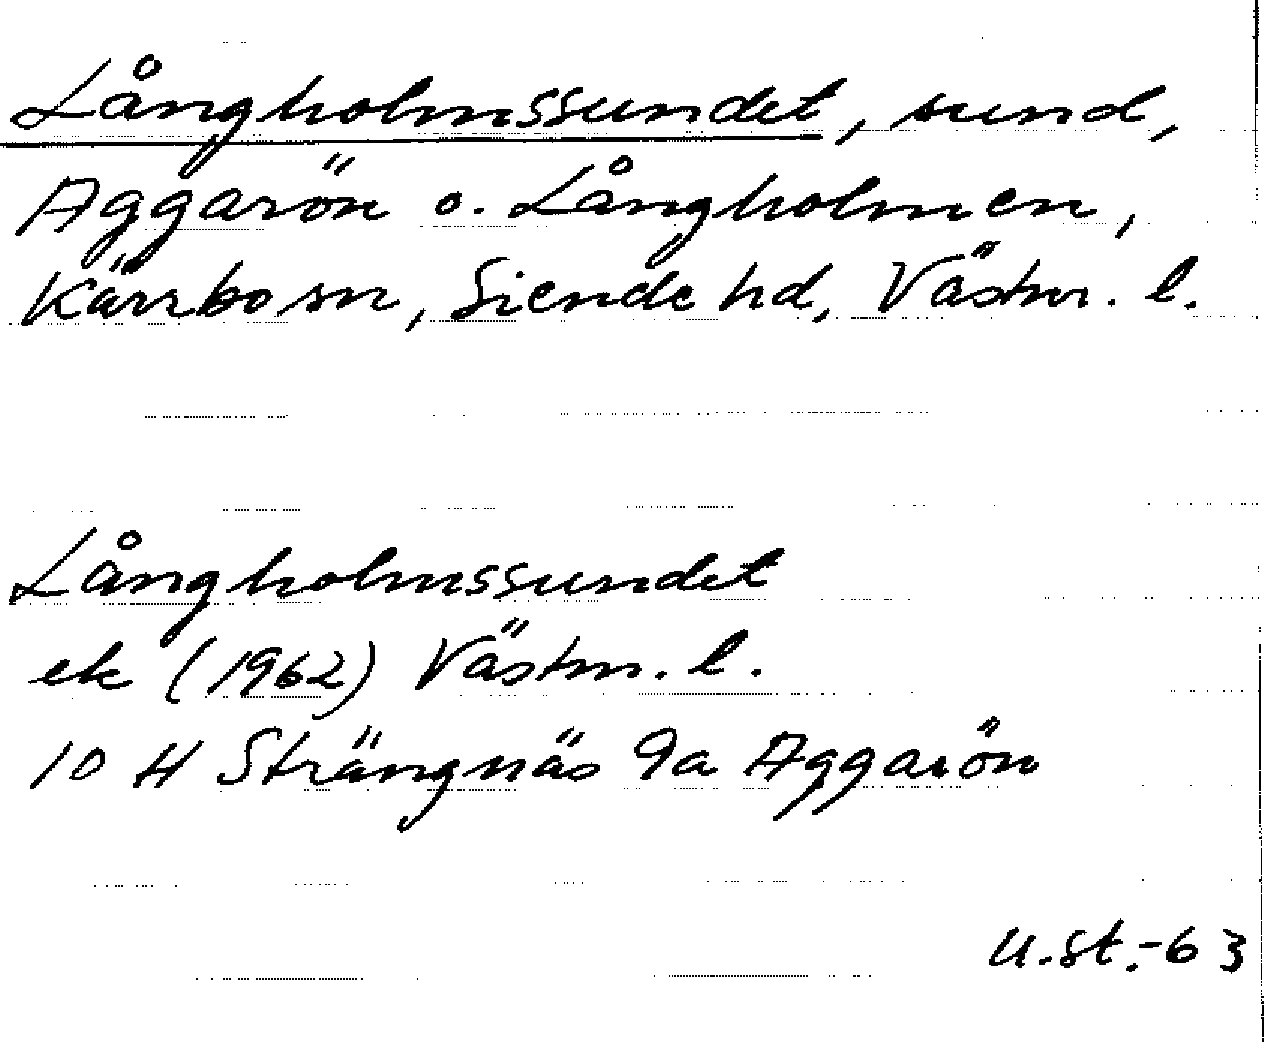 Långholmssundet, sund,
Aggarön o. Långholmen,
Kärrbo sn, Siende hd, Västm. l.
Långholmssundet
ek (1962) Västm. l.
10 H Strängnäs 9a Aggarön
U.St.-63